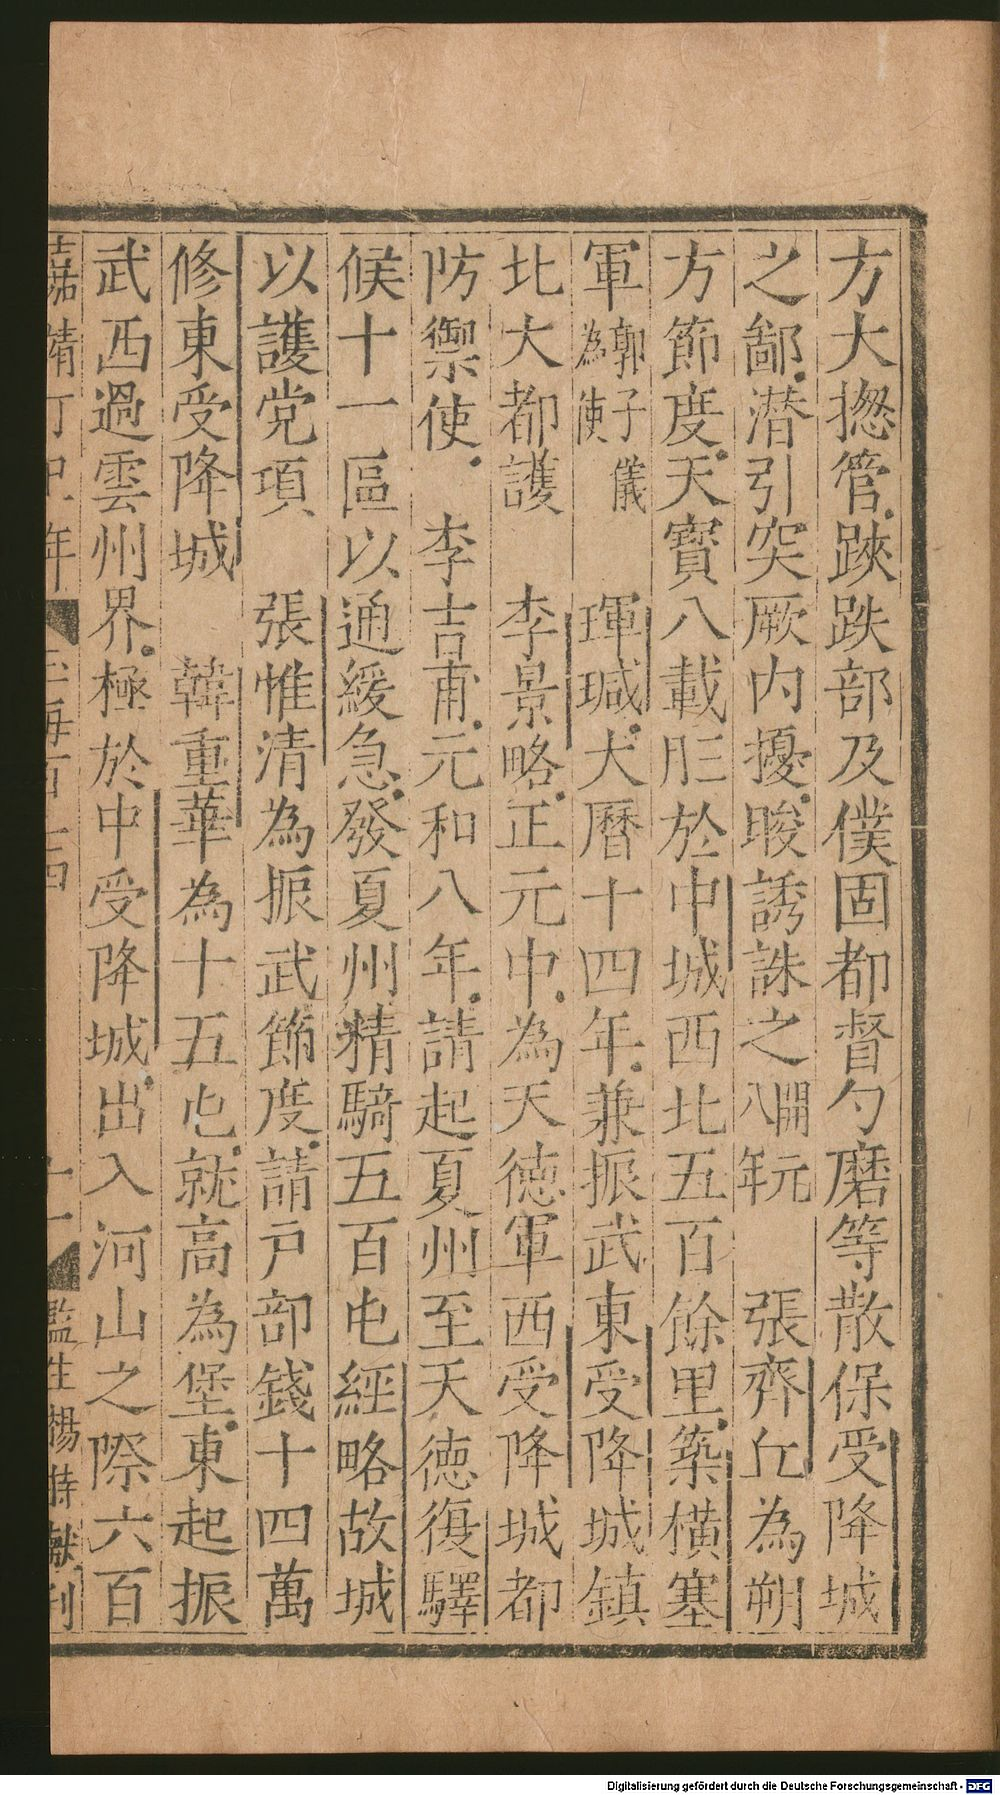 方大揔管䟴跌部及僕固都督勺磨等散保受降城
之鄙潜引突厥内擾晙誘誅之開元八年　張齊丘為朔
方節度天寳八載䏍於中城西北五百餘里築横塞
軍郭子儀為使　琿瑊大曆十四年兼振武東受降城鎮
北大都護　李景略正元中為天德軍西受降城都
防禦使　李吉甫元和八年請起夏州至天德復驛
候十一區以通緩急發夏州精騎五百屯經略故城
以護党項　張惟清為振武節度請戸部錢十四萬
修東受降城　韓重華為十五屯就高為堡東起振
武西過雲州界極於中受降城出入河山之際六百
嘉靖丁巳年　百二四　十一　監生楊持獻刊
Digitalisierung gefördert durch die Deutsche Forschungsgemeinschaft - DFG